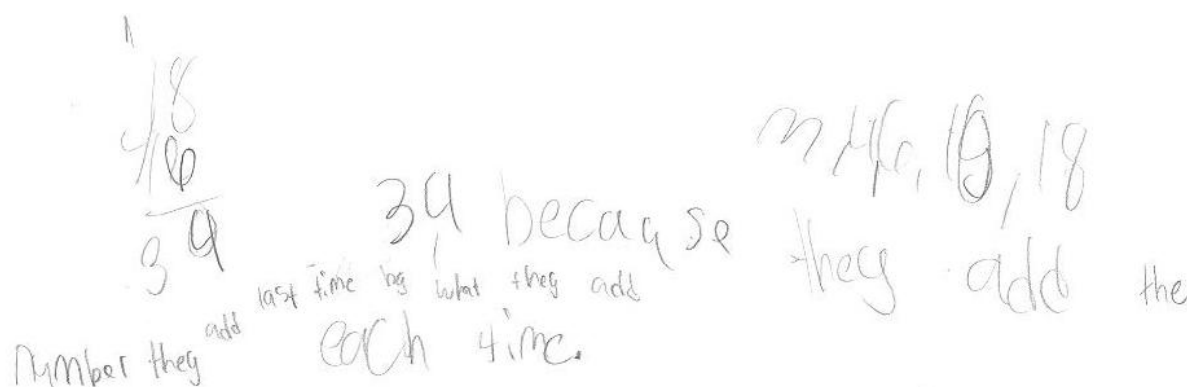 1
18
+16
34
34 because they add the
number they add last time by what they add
each time.
18